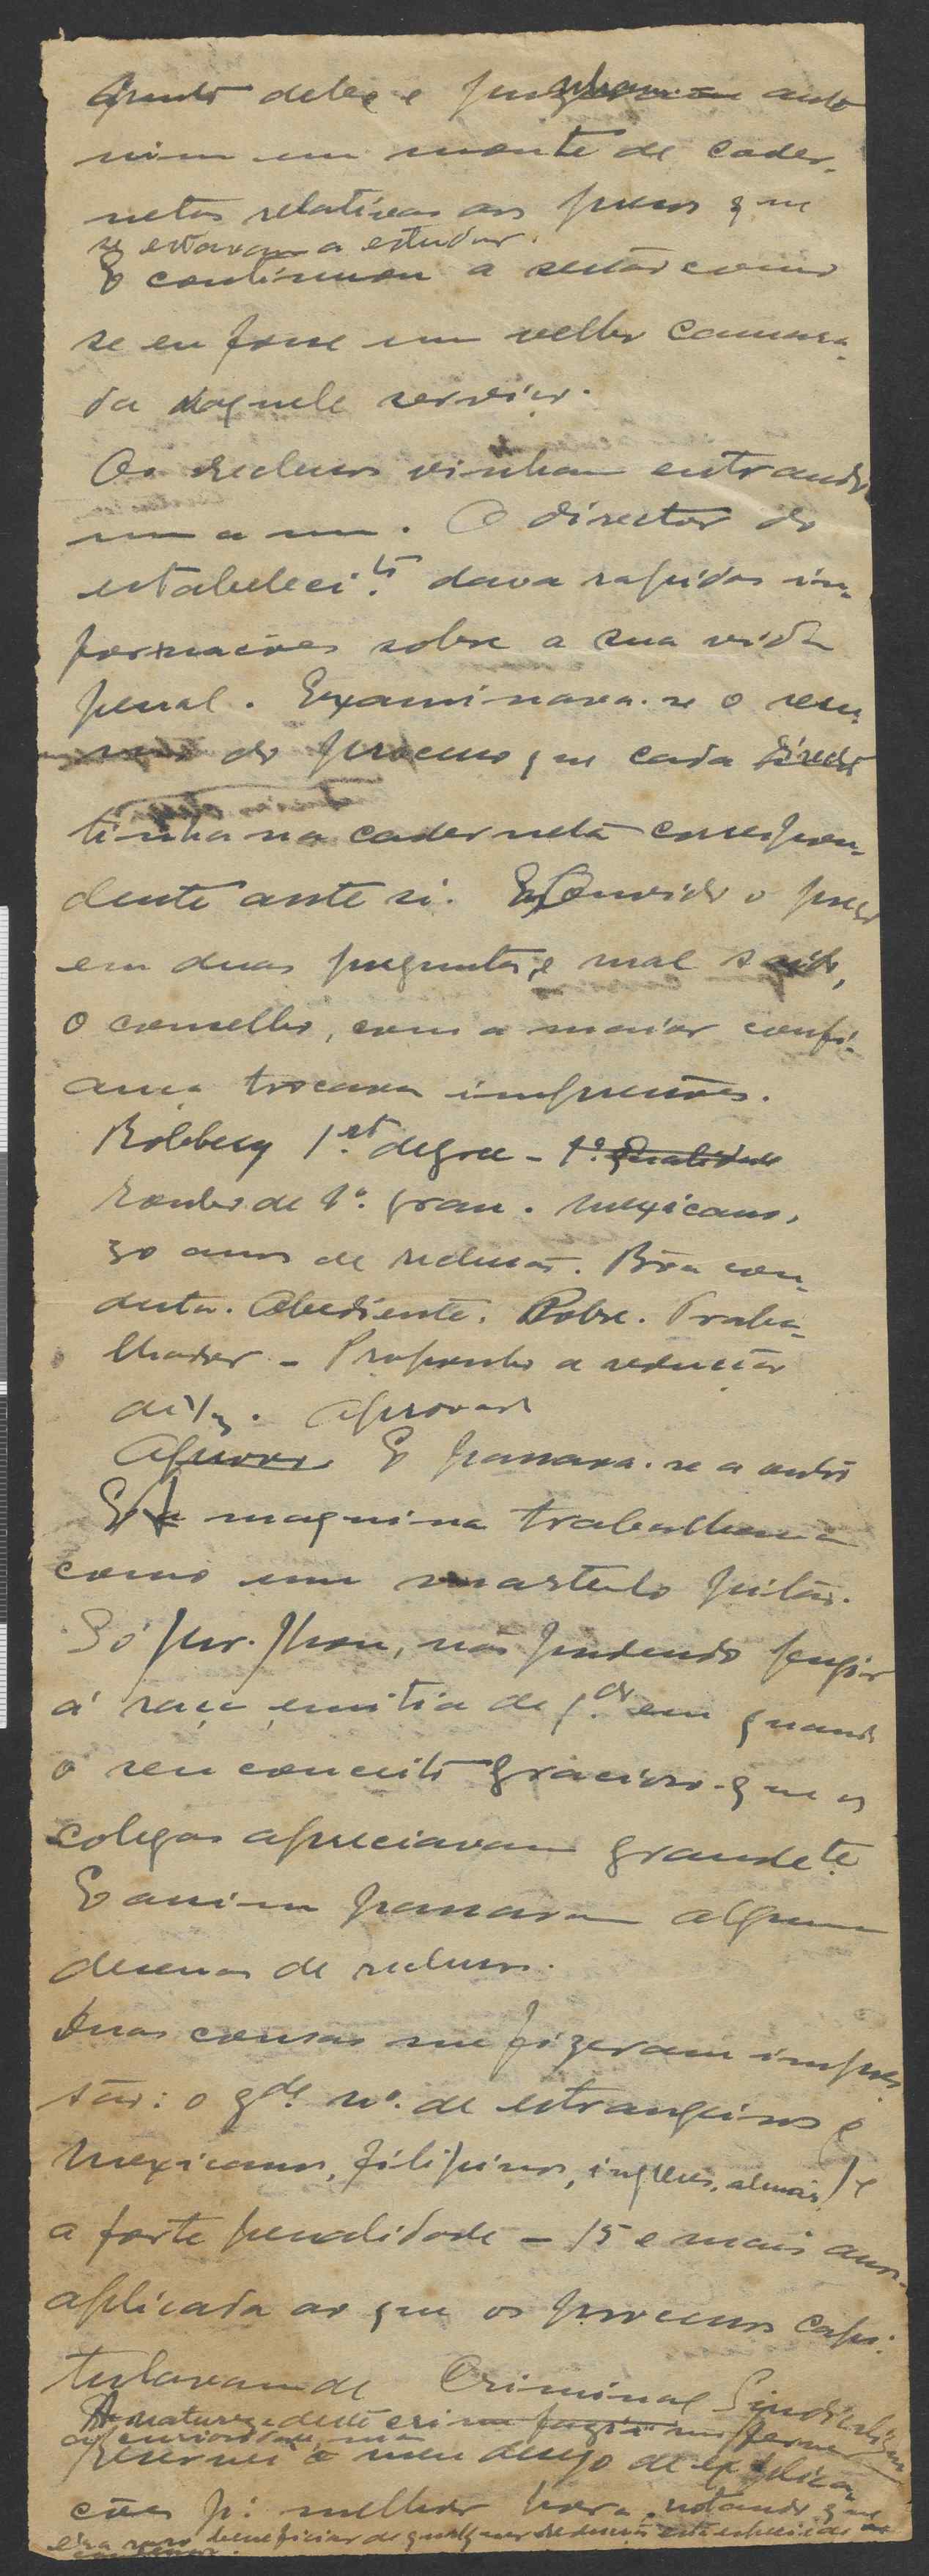 junto dele e puzeram ante
mim um monte de cader-
netas relativas aos presos que
se estavam a estudar.
E continuou a sessão como
se eu fosse um velho camara-
da daquele serviço.
Os reclusos vinham entrando
um a um. O director do
estabeleci.to dava rapidas in-
formações sobre a sua vida
penal. Examinava-se o resu-
mo do processo que cada
tinha na caderneta correspon-
dente ante si. Ouvido o preso
em duas preguntas, e mal saido,
o conselho, com a maior confi-
ança trocava impressões.
Robbery 1.st degree - 1º. qualidade
roubo de 1º. grau. Mexicano,
30 anos de reclusão. Bôa con-
duta. Obediente. Pobre. Traba-
lhador - Proponho a redução
de 1/3. Aprovado
Aprovo. E passava-se a outro
E a maquina trabalhava
como um martelo pilão.
Só Mr. , não podendo fugir
á raça emitia de q.do em quando
o seu conceito gracioso que os
colegas apreciavam grande.te
E assim passaram algumas
dezenas de reclusos.
Duas cousas me fizeram impres-
são: o g.de nº. de estrangeiros (
mexicanos, filipinos, inglezes, alemães) e
a forte penalidade - 15 e mais anos -
aplicada ao que os processos capi-
tulavam de Criminal Sindicalism
A natureza deste crime fazia-me
curiosidade, mas
reservei o meu desejo de explica-
ções p.ª melhor hora, notando que
era raro beneficiar de qualquer redução esta especie de